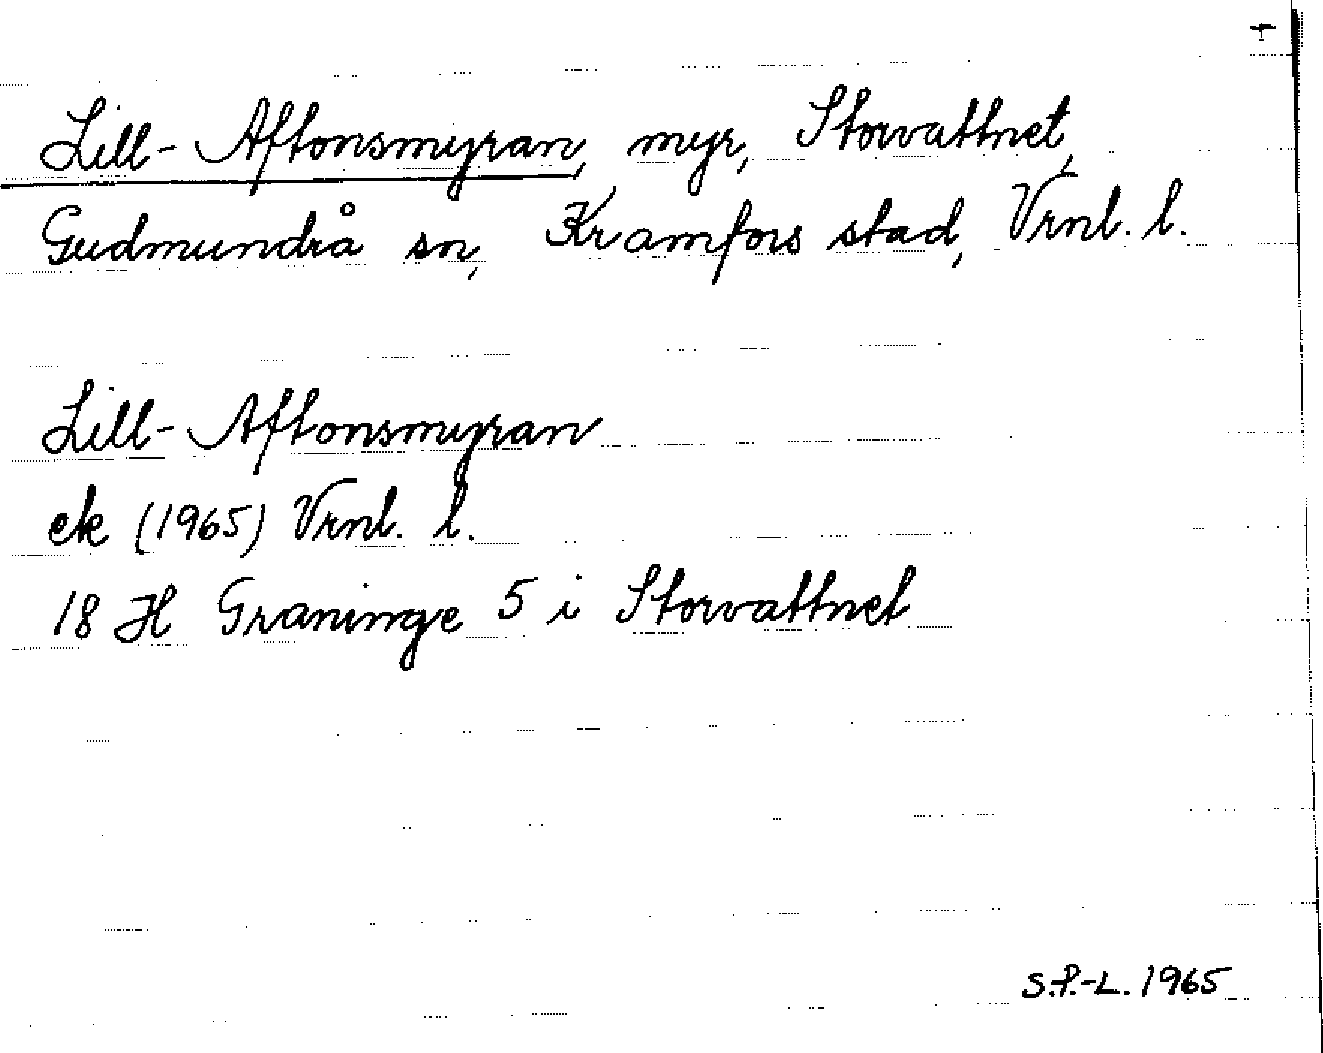 Lill-Aftonsmyran, myr, Storvattnet,
Gudmundrå sn, Kramfors stad, Vrnl. l.
Lill-Aftonsmyran
ek (1965) Vrnl. l.
18 H Graninge 5 i Storvattnet
S.P.-L. 1965